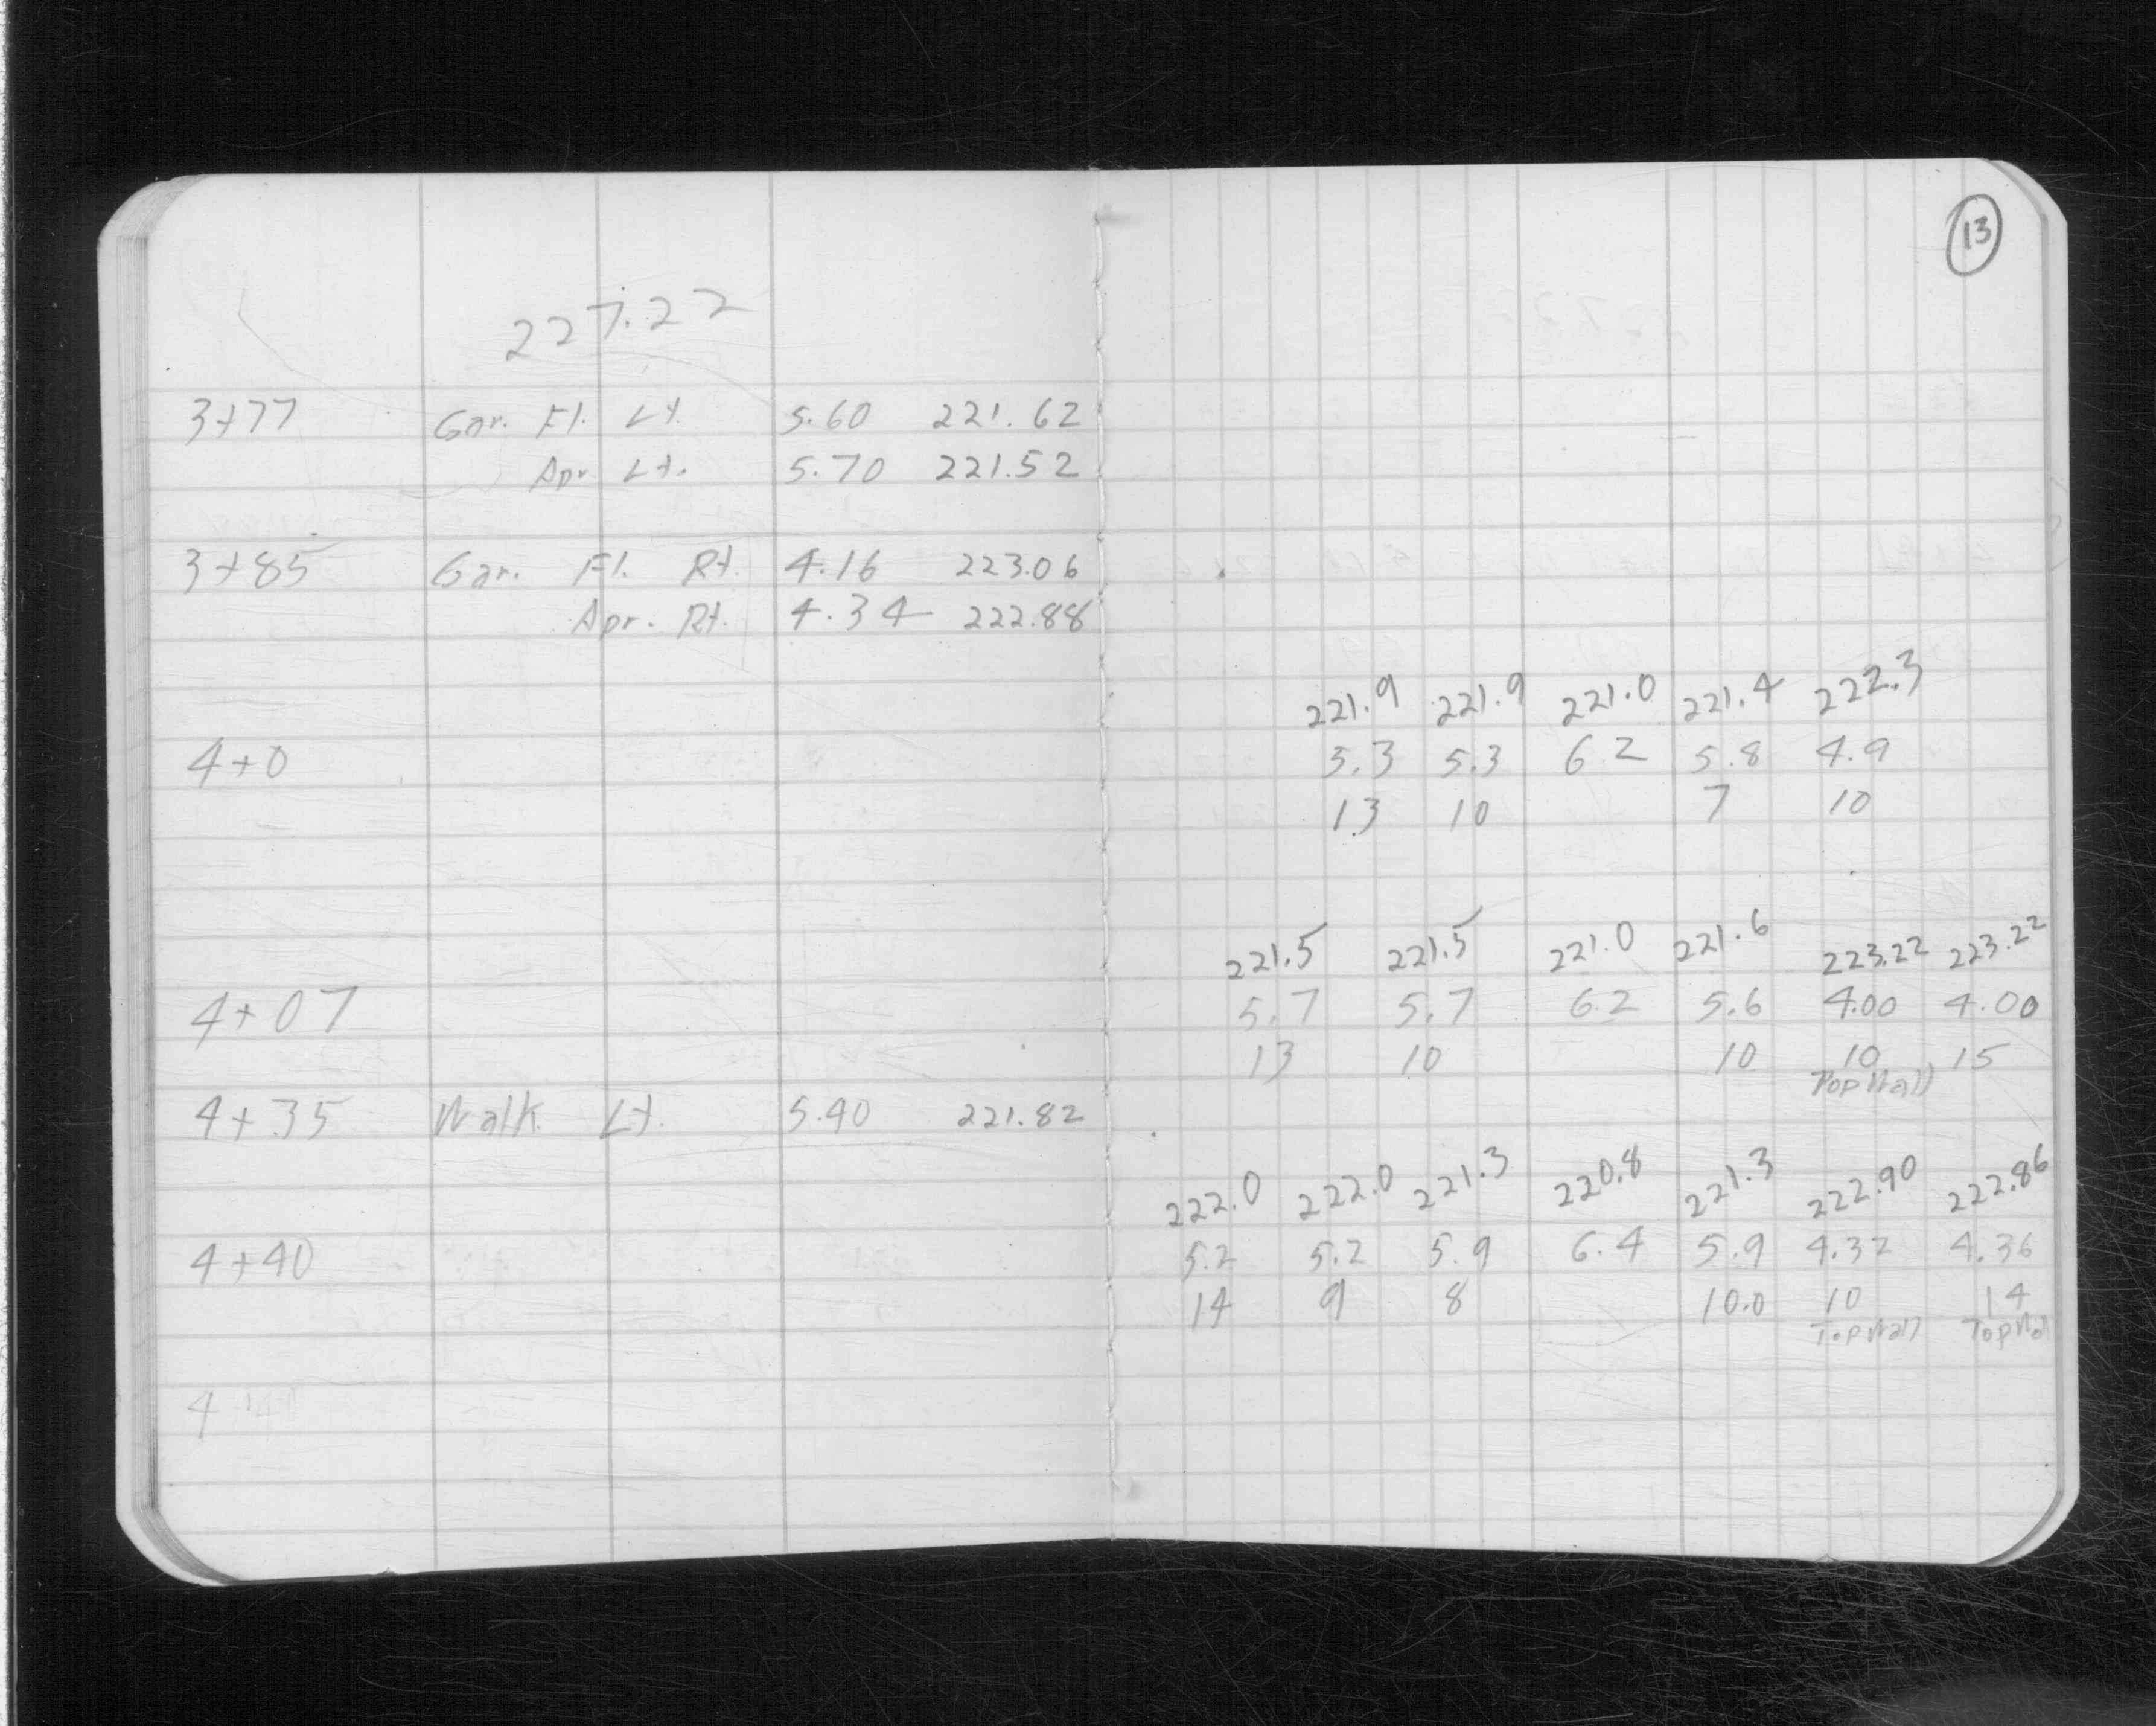 13
227.22
3+77 Gar. Fl. Lt. 5.60 221.62
Apr. Lt. 5.70 221.52
3+85 Gar. Fl. Rt. 4.16 223.06
Apr. Rt. 4.34 222.88
221.9 221.9 221.0 221.4 222.3
4+0 5.3 5.3 6.2 5.8 4.9
13 10 7 10
221.5 221.5 221.0 221.6 223.22 223.22
4+07 5.7 5.7 6.2 5.6 4.00 4.00
13 10 10 10 15
Top Wall
4+35 Walk Lt. 5.40 221.82
222.0 222.0 221.3 220.8 221.3 222.90 222.86
4+40 5.2 5.2 5.9 6.4 5.9 4.32 4.36
14 9 8 10.0 10 14
Top Wall Top Wal
4